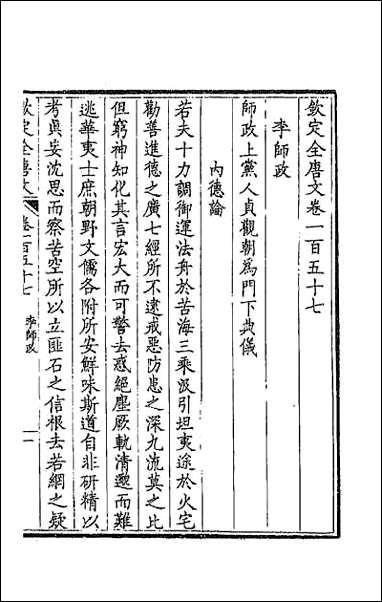 欽定全唐文卷一百五十七
李師政
師政上黨人貞觀朝爲門下典儀
內德論
若夫十力調御運法舟於苦海三乘汲引坦夷途於火宅
勸善進德之廣七經所不逮戒惡防患之深九流莫之比
但窮神知化其言宏大而可警去惑絕塵厥軌清邈而難
逃華夷士庶朝野文儒各附所安鮮味斯道自非研精以
考眞妄沈思而察苦空所以立匪石之信根去若網之疑
欽定全唐文 卷一百五十七 李師政 一